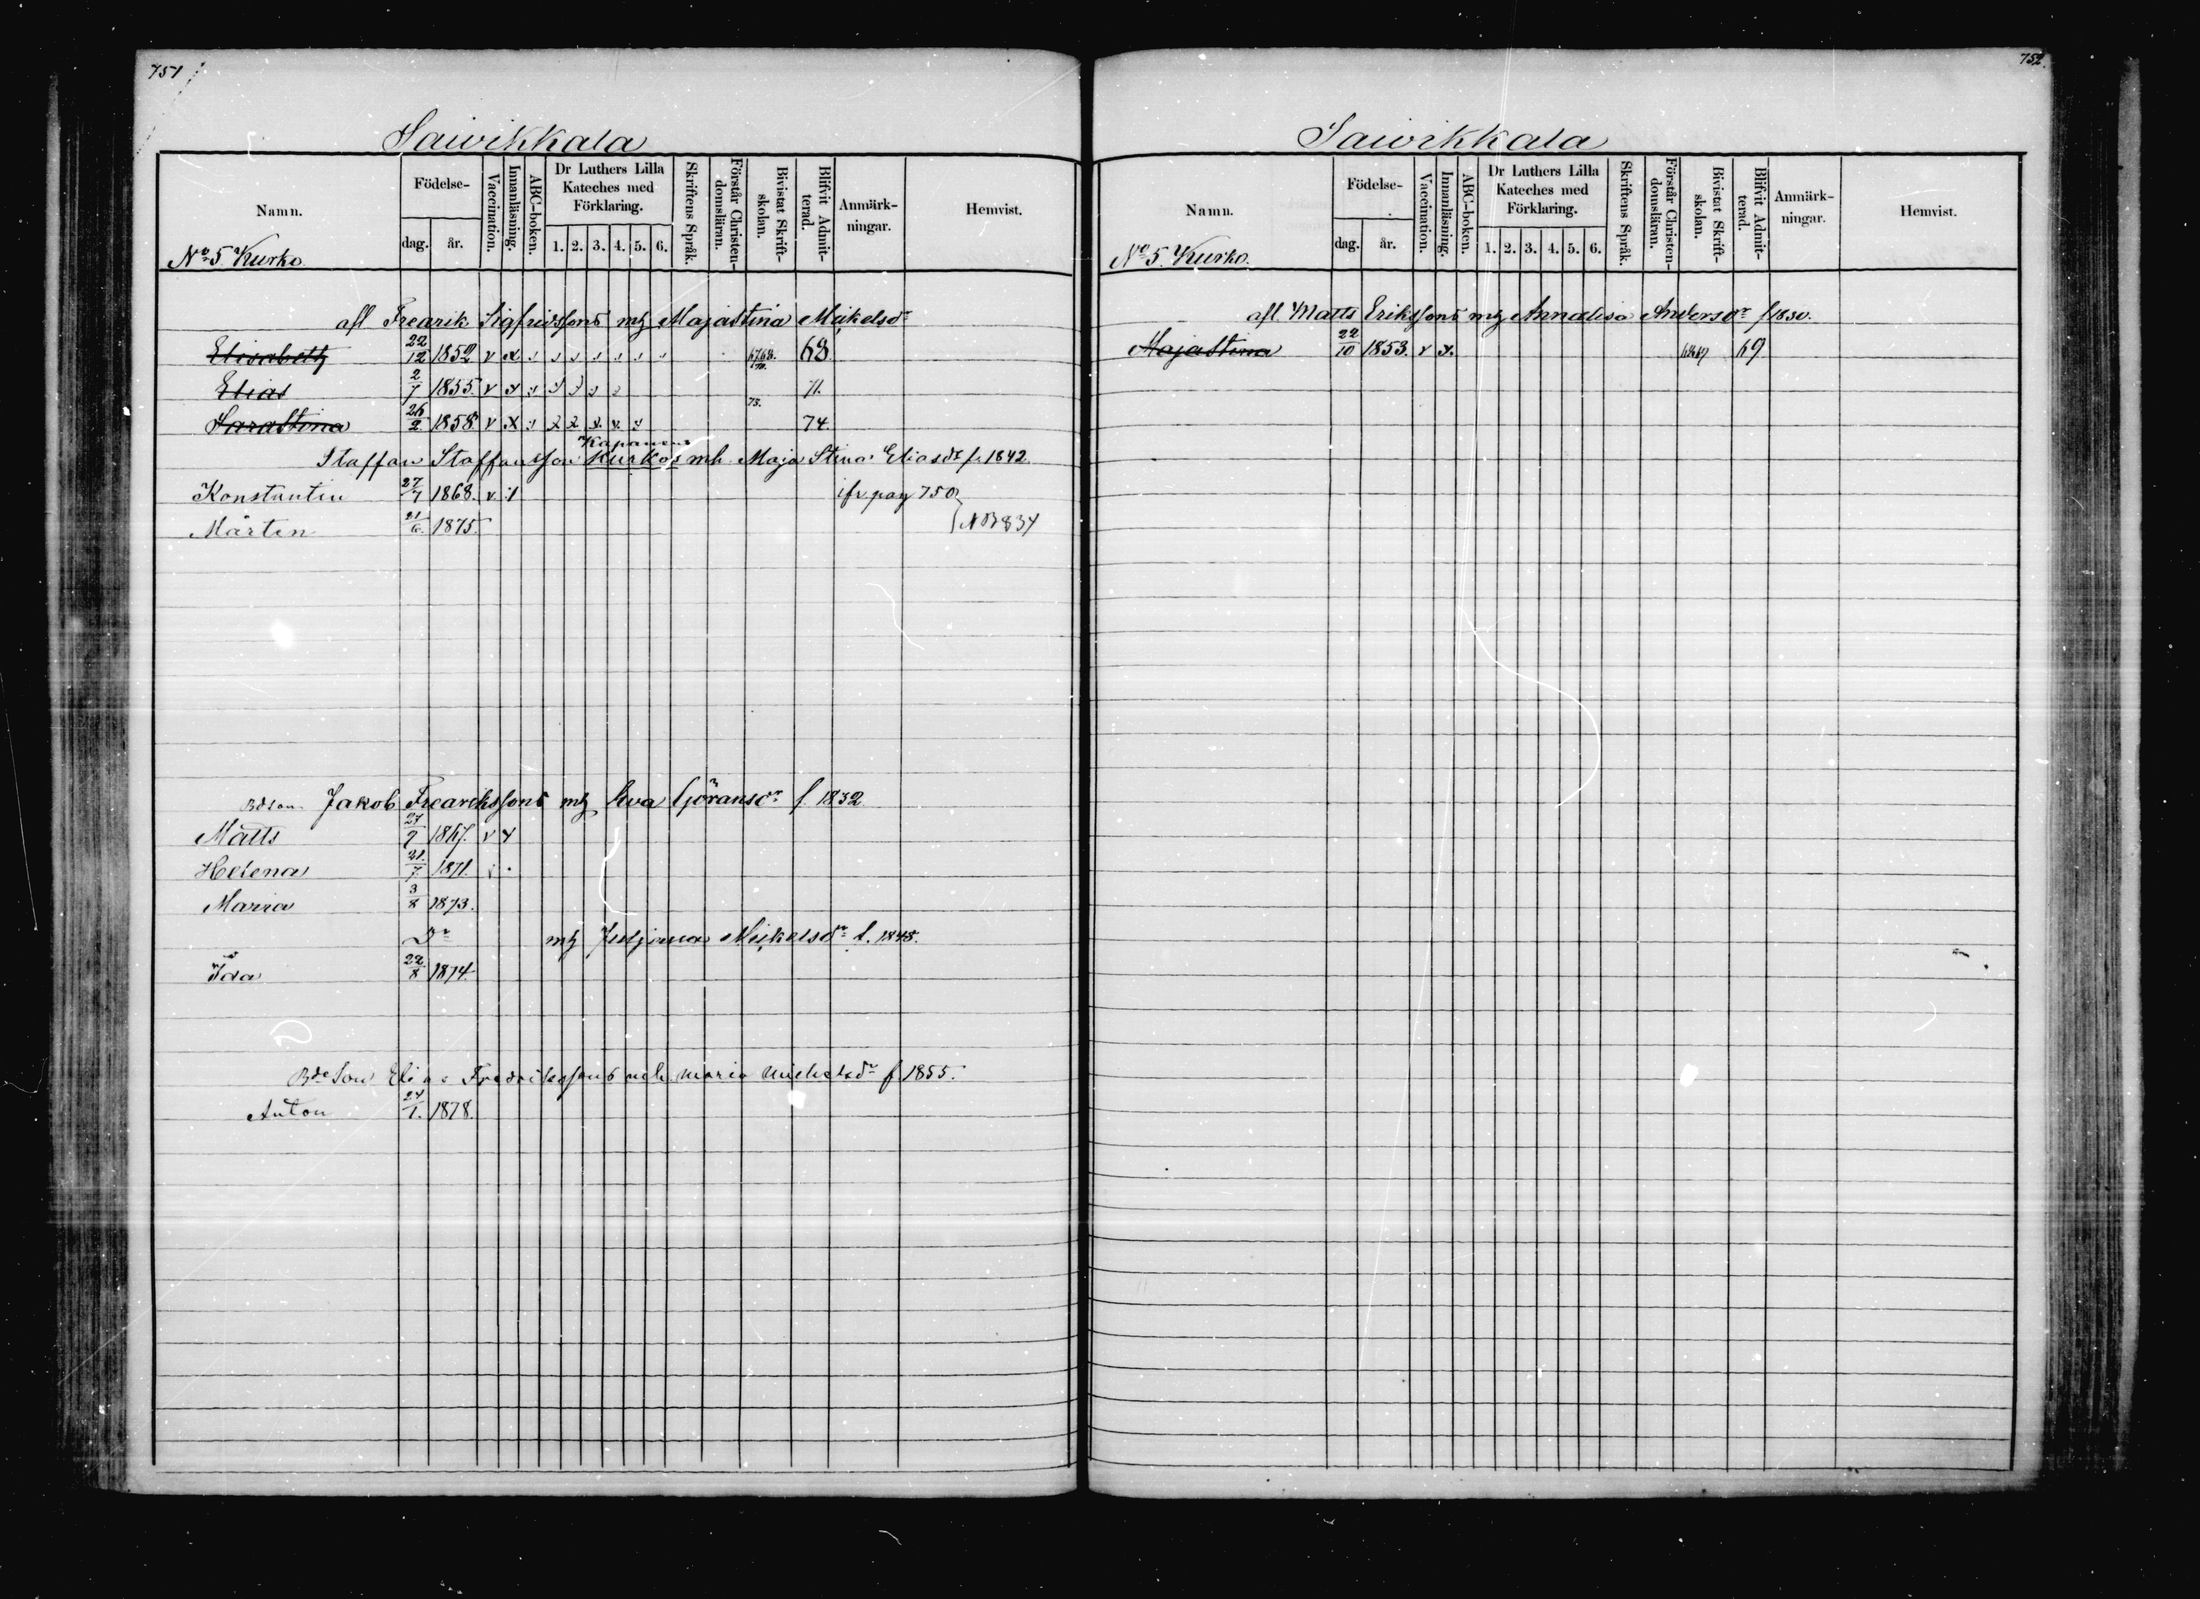 751
Saivikkala
Namn. Födelse- dag. år. Vaccination. Innanläsning. ABC-boken. Dr Luthers Lilla Kateches med Förklaring. 1. 2. 3. 4. 5. 6. Skriftens Språk. Förstår Christen-domsläran. Bivistat Skrift-skolan. Blifvit Admit-terad. Anmärk-ningar. Hemvist.
No 5 Kurko.
afl Fredrik Sigfridssons mh Majastina Mickelsdr
Elisabeth 22/12 1852 v x 67.68. 68
Elias 2/7 1855 v 71.
73.
Sarastina 26/2 1858 v x 74
Kapanens
Staffan Staffansson Kurkos mh Maja Stina Eliasdr f. 1842
Konstantin 27/7 1868. v ifr pag 750
Mårten 21/6. 1875. NB 834
Bdeson Jakob Fredrikssons mh Eva Göransdr f. 1832
Matts 27/9 1867. v
Helena 21./7 1871.
Maria 3/8 1873.
Do mh Juljana Mickelsdr f. 1845.
Ida 22/8 1874.
Bde Son Elias Fredrikssons mh Maria Mickelsdr f 1855.
Anton 24/1. 1878.
752.
Saivikkala
Namn. Födelse- dag. år. Vaccination. Innanläsning. ABC-boken. Dr Luthers Lilla Kateches med Förklaring. 1. 2. 3. 4. 5. 6. Skriftens Språk. Förstår Christen-domsläran. Bivistat Skrift-skolan. Blifvit Admit-terad. Anmärk-ningar. Hemvist.
No 5. Kurko.
afl. Matts Erikssons mh Annalisa Andersdr f 1830.
Majastina 22/10 1853. v x. 69